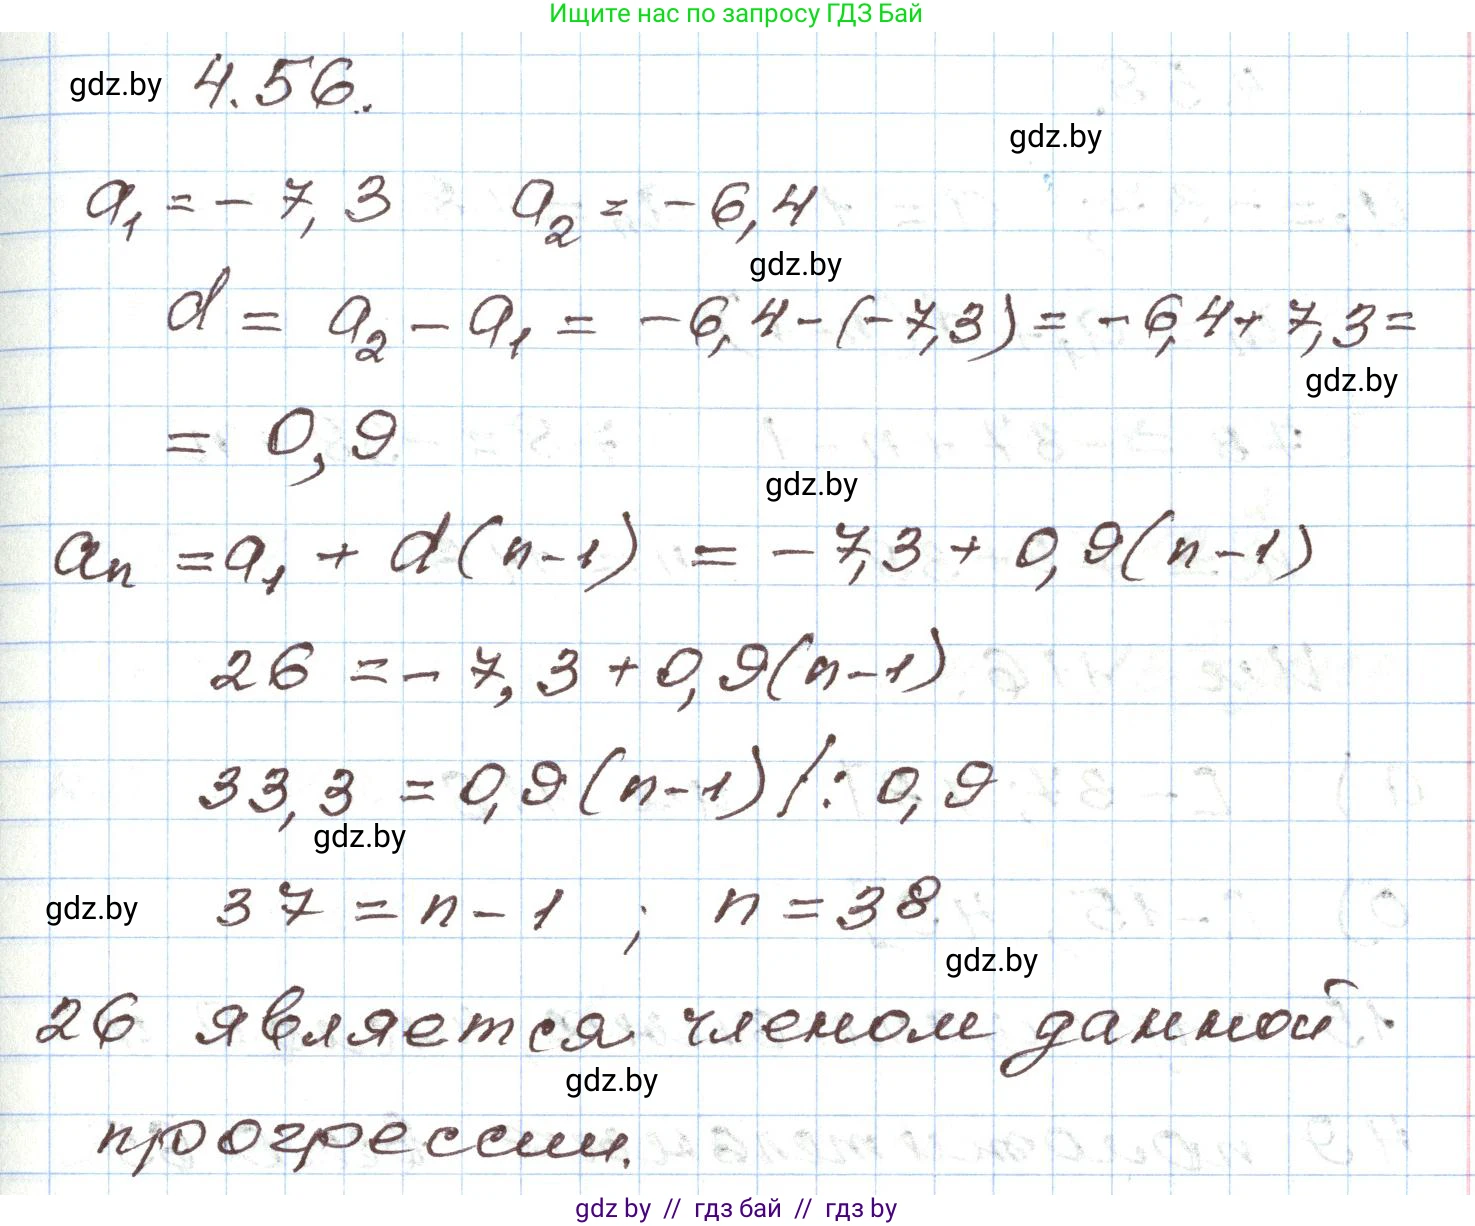 Ищите нас по запросу ГДЗ Бай
gdz.by 4.56.
gdz.by
a₁ = - 7,3 a₂ = - 6,4
gdz.by
d = a₂ - a₁ = - 6,4 - (- 7,3) = - 6,4 + 7,3 =
gdz.by
= 0,9
gdz.by
aₙ = a₁ + d(n-1) = - 7,3 + 0,9(n-1)
26 = - 7,3 + 0,9(n-1)
33,3 = 0,9(n-1) /: 0,9
gdz.by
gdz.by 37 = n - 1 ; n = 38
gdz.by
26 является членом данной
gdz.by
прогрессии.
gdz by // гдз бай // гдз by